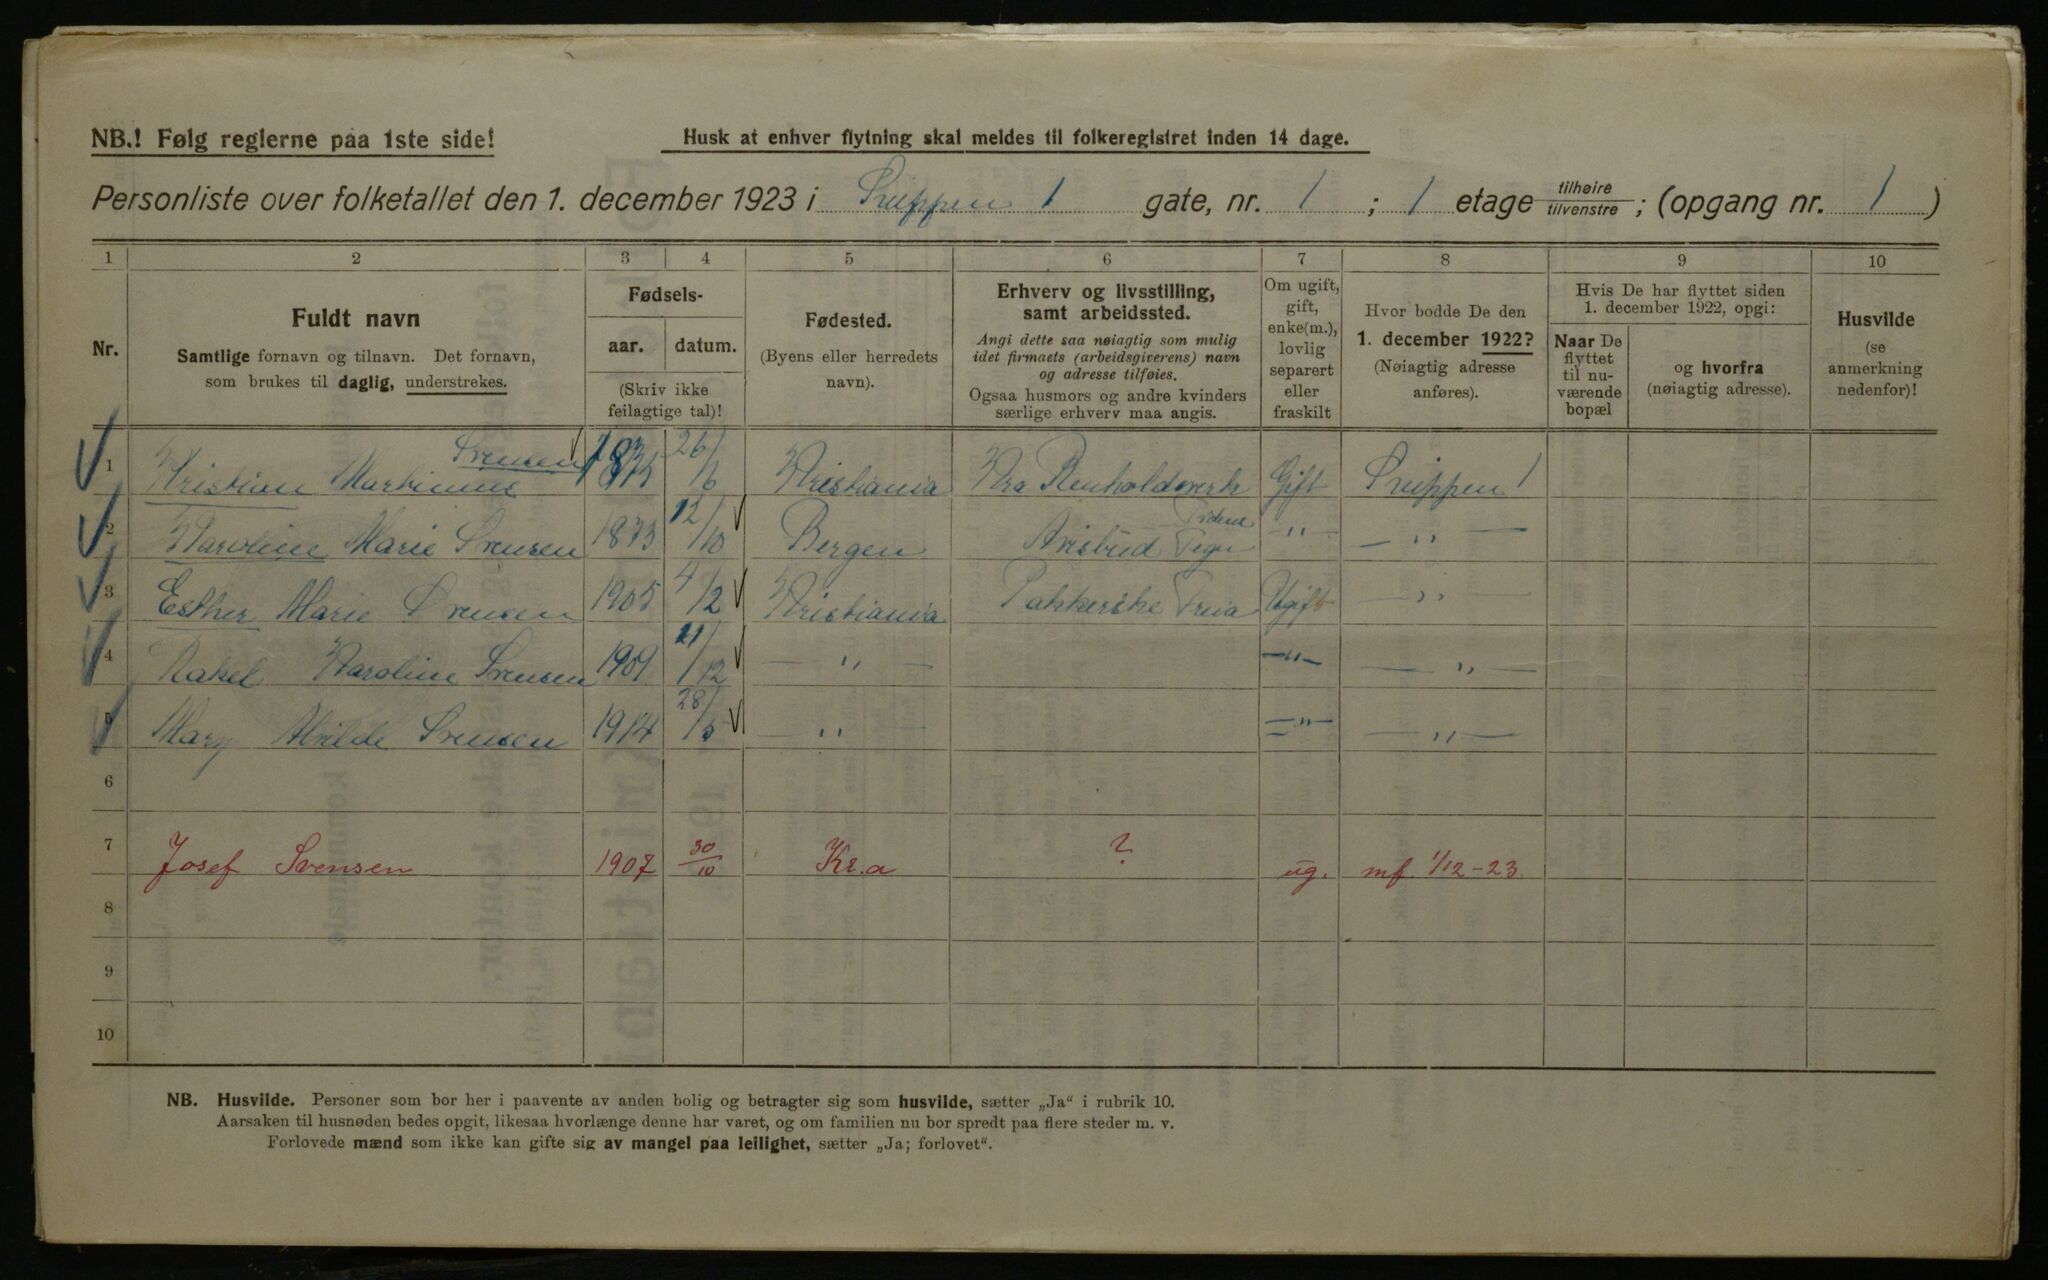 NB.! Følg reglerne paa 1ste side!
Husk at enhver flytning skal meldes til folkeregistret inden 14 dage.
Personliste over folketallet den 1. december 1923 i Snippen 1 gate, nr. 1 ; 1 etage tilhøire tilvenstre ; (opgang nr. 1 )
1 2 3 4 5 6 7 8 9 10
Nr.
Fuldt navn
Samtlige fornavn og tilnavn. Det fornavn,
som brukes til daglig, understrekes.
Fødsels-
aar. datum.
(Skriv ikke
feilagtige tal)!
Fødested.
(Byens eller herredets
navn).
Erhverv og livsstilling,
samt arbeidssted.
Angi dette saa nøiagtig som mulig
idet firmaets (arbeidsgiverens) navn
og adresse tilføies.
Ogsaa husmors og andre kvinders
særlige erhverv maa angis.
Om ugift,
gift,
enke(m.),
lovlig
separert
eller
fraskilt
Hvor bodde De den
1. december 1922?
(Nøiagtig adresse
anføres).
Hvis De har flyttet siden
1. december 1922, opgi:
Naar De
flyttet
til nu-
værende
bopæl
og hvorfra
(nøiagtig adresse).
Husvilde
(se
anmerkning
nedenfor)!
1 Kristian Martinius Svensen 26/6 Kristiania Kra Renholdsverk Gift Snippen 1
2 Karoline Marie Svensen 1873 12/10 Bergen Avisbud — " — — " —
3 Esther Marie Svensen 1905 4/2 Kristiania Pakkerske Freia Ugift — " —
4 Rakel Karoline Svensen 1909 11/12 — " — — " — — " —
5 Mary Alvilde Svensen 1914 28/5 — " — — " — — " —
6
7 Josef Svensen 1907 30/10 Kr.a ? ug. mf. 1/12-23.
8
9
10
NB. Husvilde. Personer som bor her i paavente av anden bolig og betragter sig som husvilde, sætter „Ja“ i rubrik 10.
Aarsaken til husnøden bedes opgit, likesaa hvorlænge denne har varet, og om familien nu bor spredt paa flere steder m. v.
Forlovede mænd som ikke kan gifte sig av mangel paa leilighet, sætter „Ja; forlovet“.